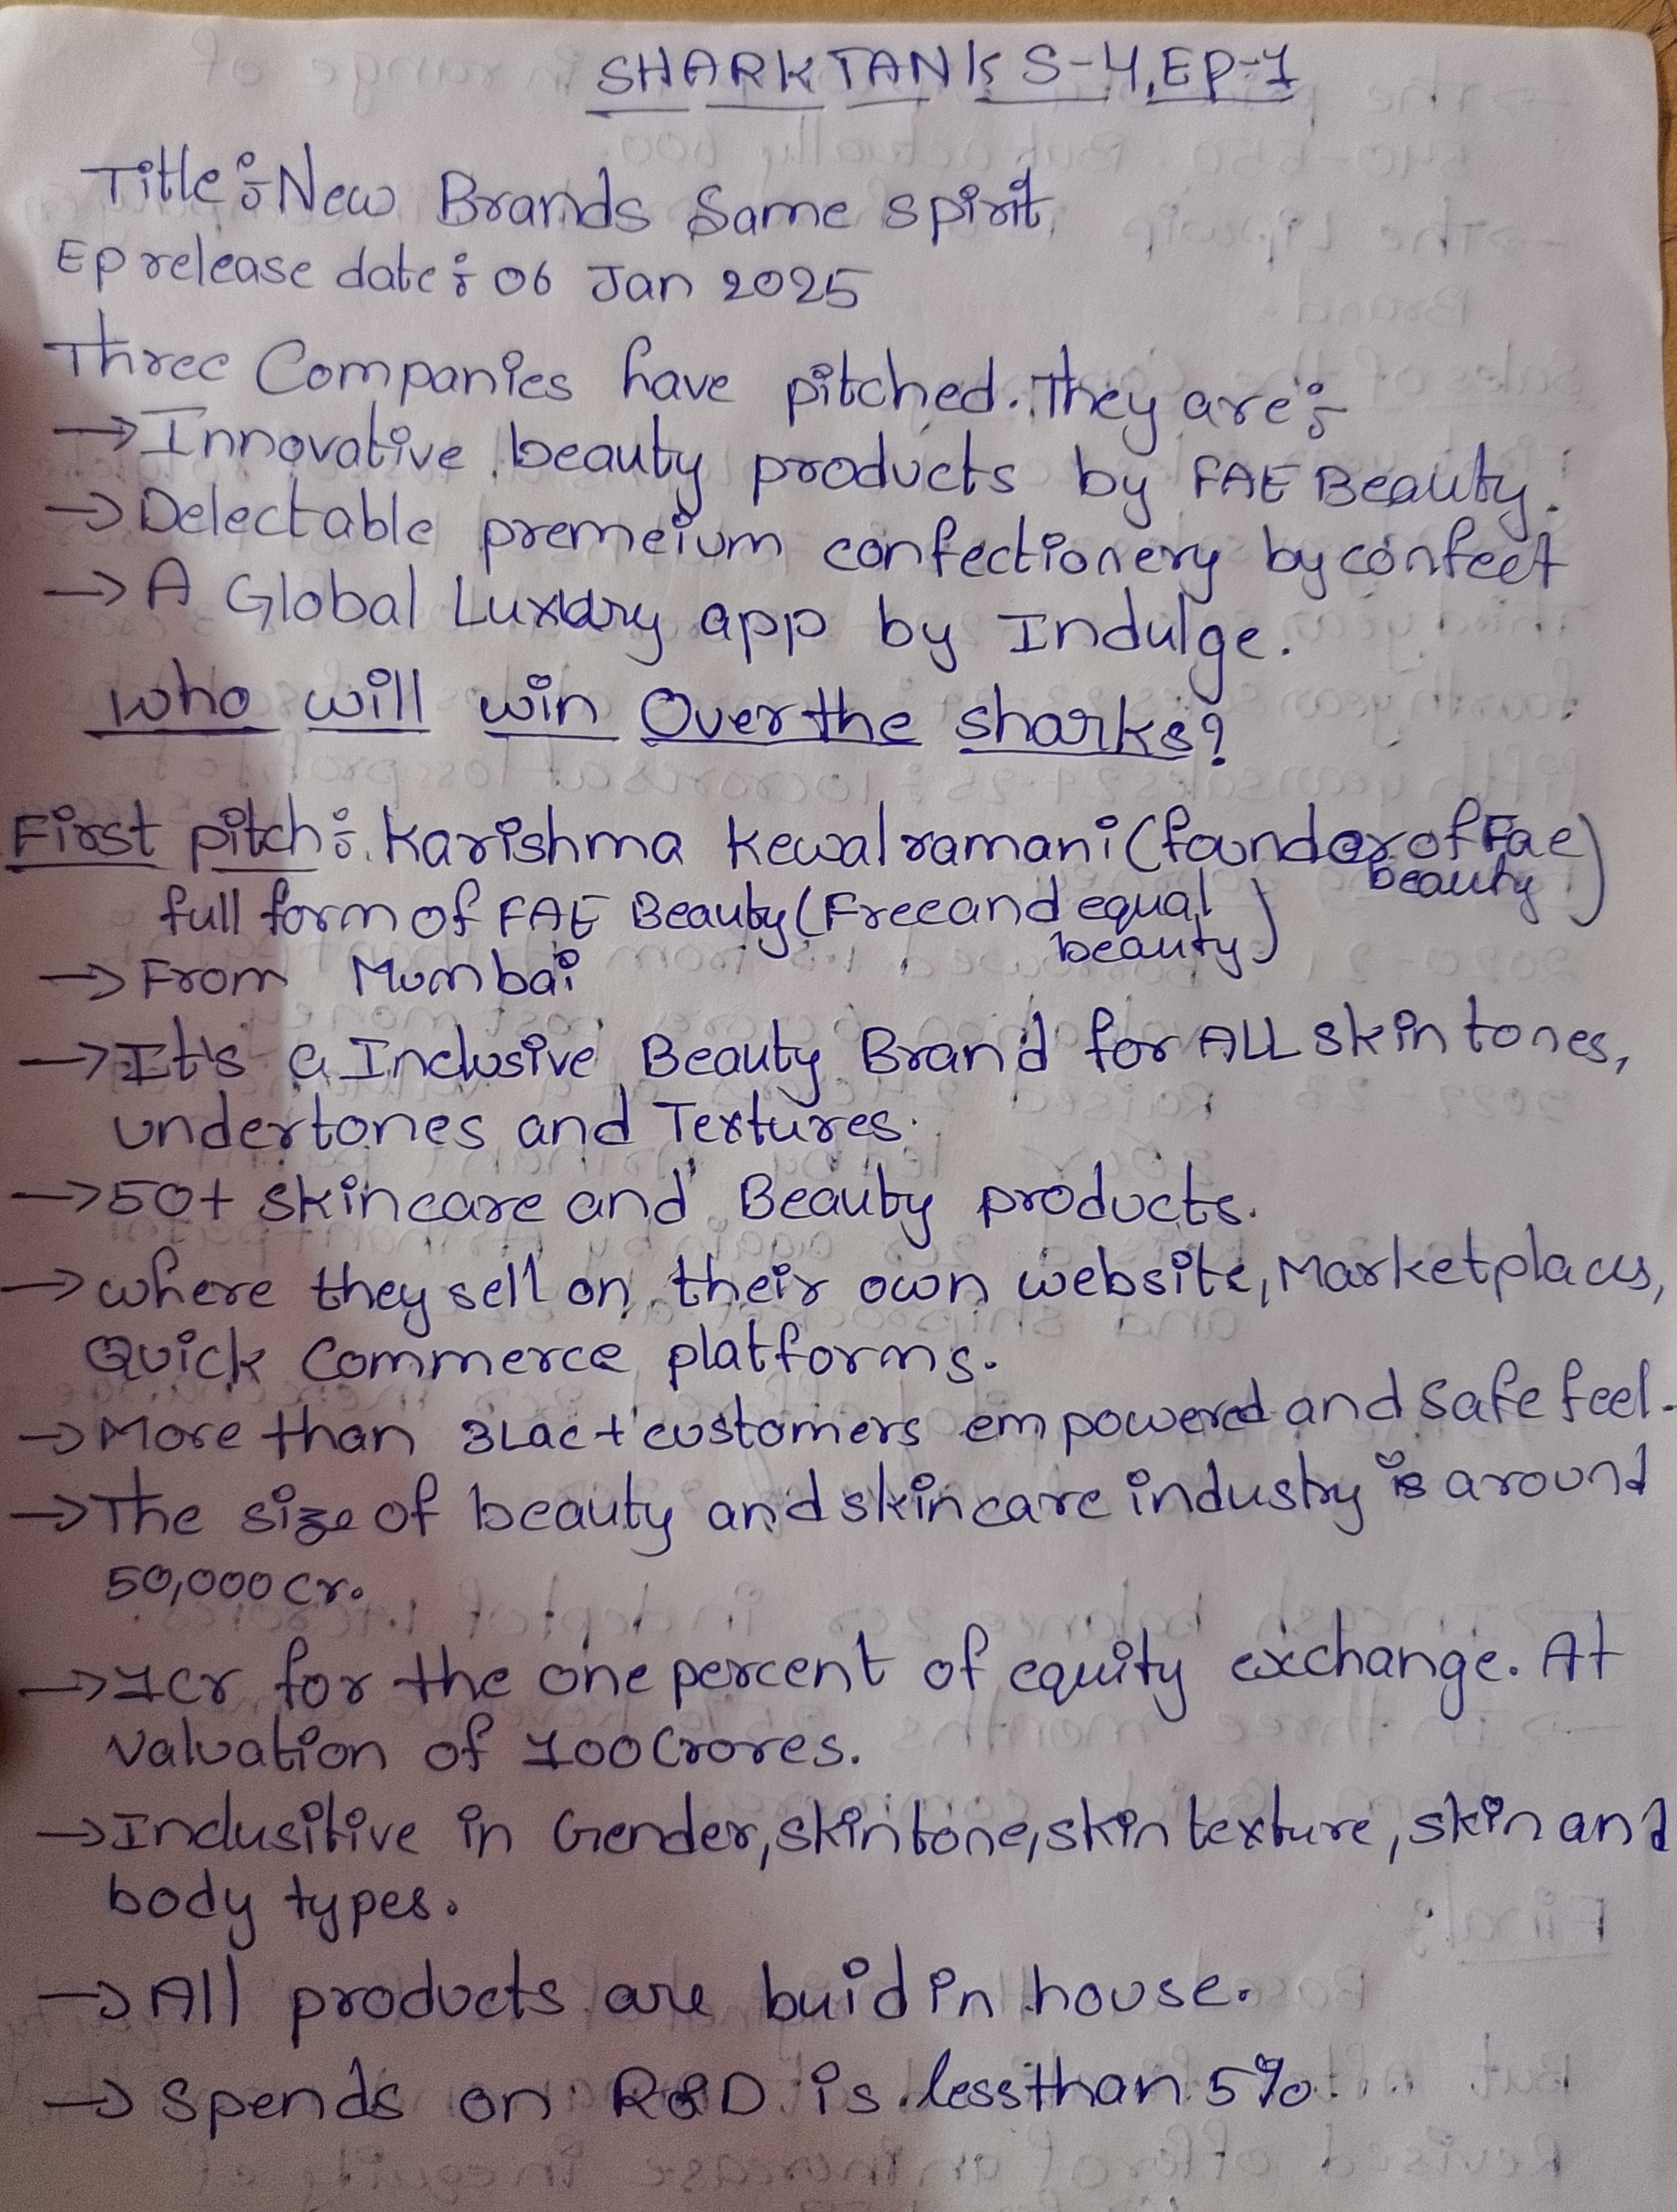 SHARK TANK S-4, EP-1
Title:- New Brands Same spirit
Ep release date: 06 Jan 2025
Three Companies have pitched. They are:-
→ Innovative beauty products by FAE Beauty.
→ Delectable premeium confectionery by confect
→ A Global Luxury app by Indulge.
who will win Over the sharks?
First pitch:- Karishma Kewalramani (founder of Fae
beauty)
full form of FAE Beauty (Free and equal
beauty)
→ From Mumbai
→ It's a Inclusive Beauty Brand for ALL skin tones,
undertones and Textures.
→ 50+ skincare and Beauty products.
→ where they sell on their own website, Marketplaces,
Quick Commerce platforms.
→ More than 3Lac+ customers empowered and safe feel.
→ The size of beauty and skincare industry is around
50,000 Cr.
→ 1cr for the one percent of equity exchange. At
valuation of 100 Crores.
→ Inclusitive in Gender, skintone, skin texture, skin and
body types.
→ All products are buid in house.
→ Spends on R&D is less than 5%